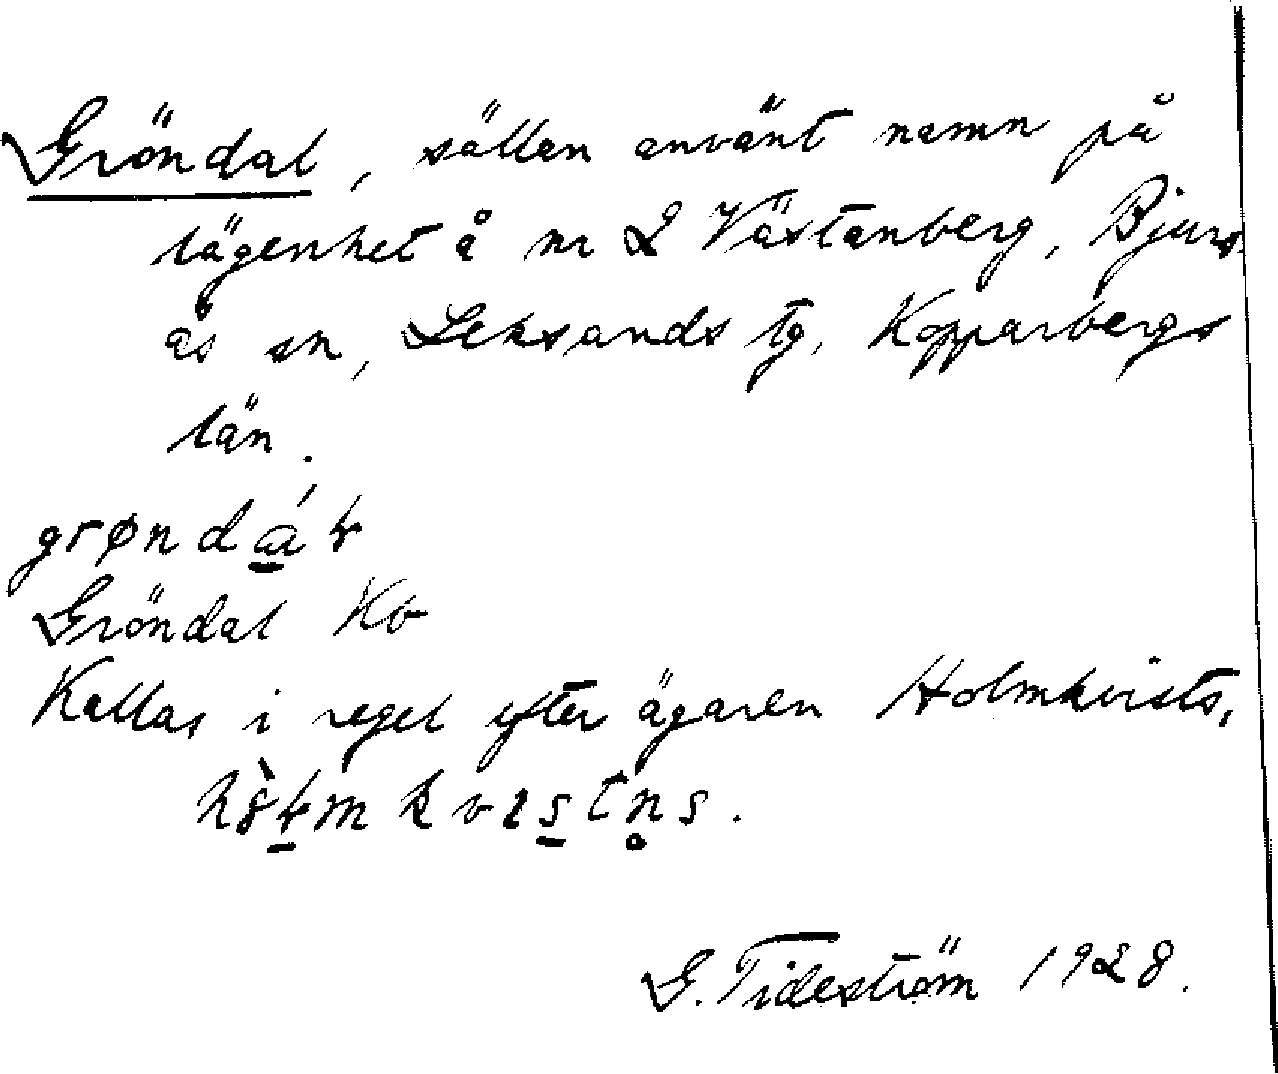 Gröndal, sällan använt namn på
lägenhet å nr 2 Västanberg, Bjurs
ås sn, Leksands tg, Kopparbergs
län.
grøndá̲ꞎ
Gröndal Kb
Kallas i regel efter ägaren Holmkvists,
m kvıs̲tn̥s.
G. Tideström 1928.